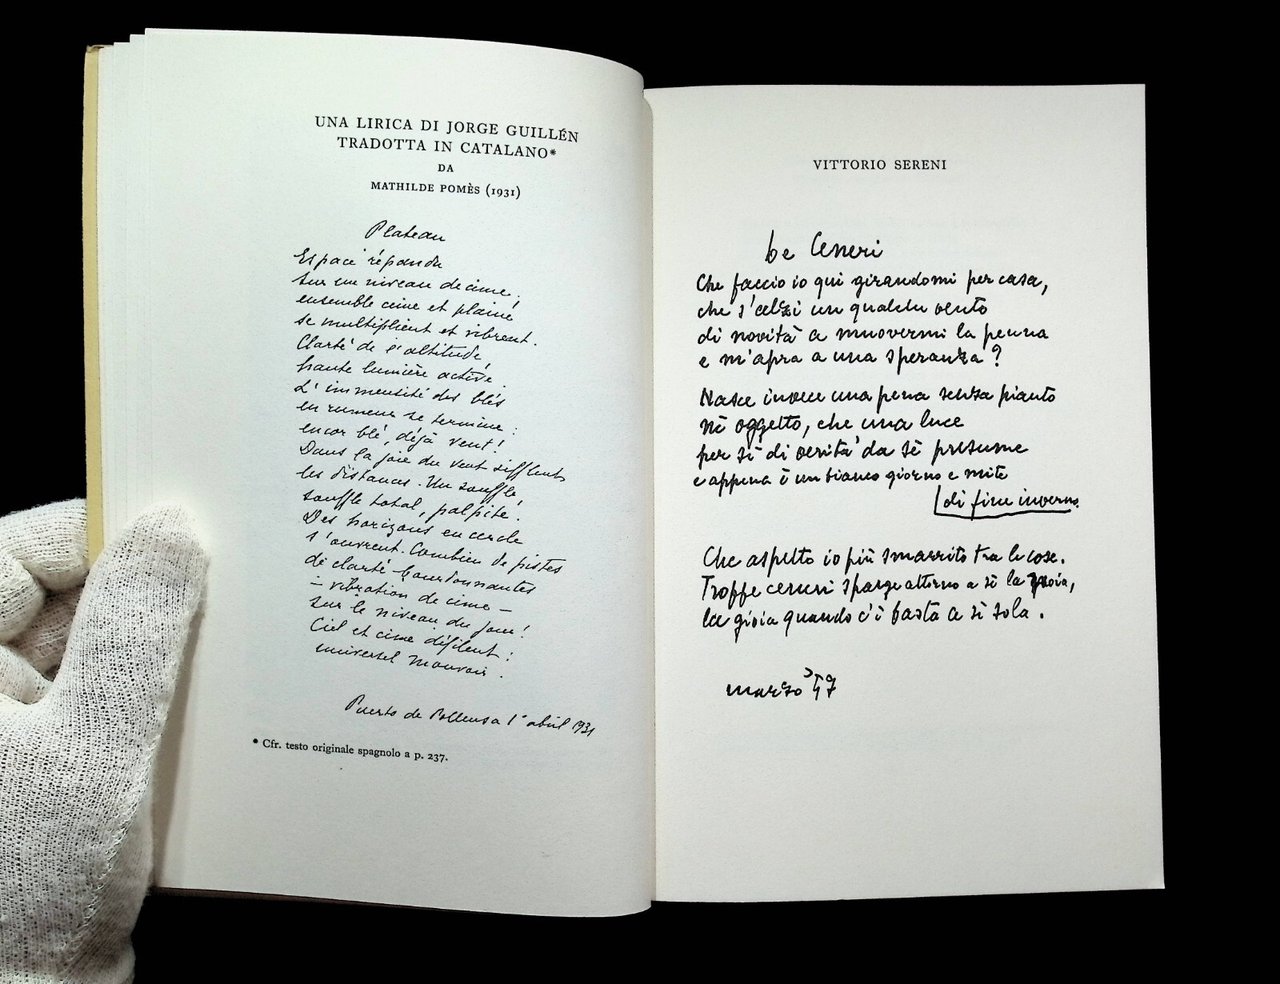 UNA LIRICA DI JORGE GUILLÉN
TRADOTTA IN CATALANO*
DA
MATHILDE POMÈS (1931)
Plateau
Espace répandu
sur un niveau de cime,
ensemble cime et plaine
se multiplient et vibrent.
Clarté de l'altitude,
haute lumière active.
L'immensité des blés
en rumeur se termine:
encor blé, déjà vent!
Dans la joie du vent sifflent
les distances. Un souffle,
souffle total, palpite.
Des horizons en cercle
s'ouvrent. Combien de pistes
de clarté bourdonnantes
– vibration de cime –
sur le niveau du jour!
Ciel et cime défilent:
universel mouvoir.
Puerto de Pollensa 1° abril 1931
* Cfr. testo originale spagnolo a p. 237.
VITTORIO SERENI
Le Ceneri
Che faccio io qui girandomi per casa,
che s'alzi un qualche vento
di novità a muovermi la penna
e m'apra a una speranza?
Nasce invece una pena senza pianto
né oggetto, che una luce
per sé di verità da sé presume
e appena è un bianco giorno e mite
di fine inverno.
Che aspetto io più smarrito tra le cose.
Troppe ceneri sparge attorno a sé la noia,
la gioia quando c'è basta a sé sola.
marzo '57